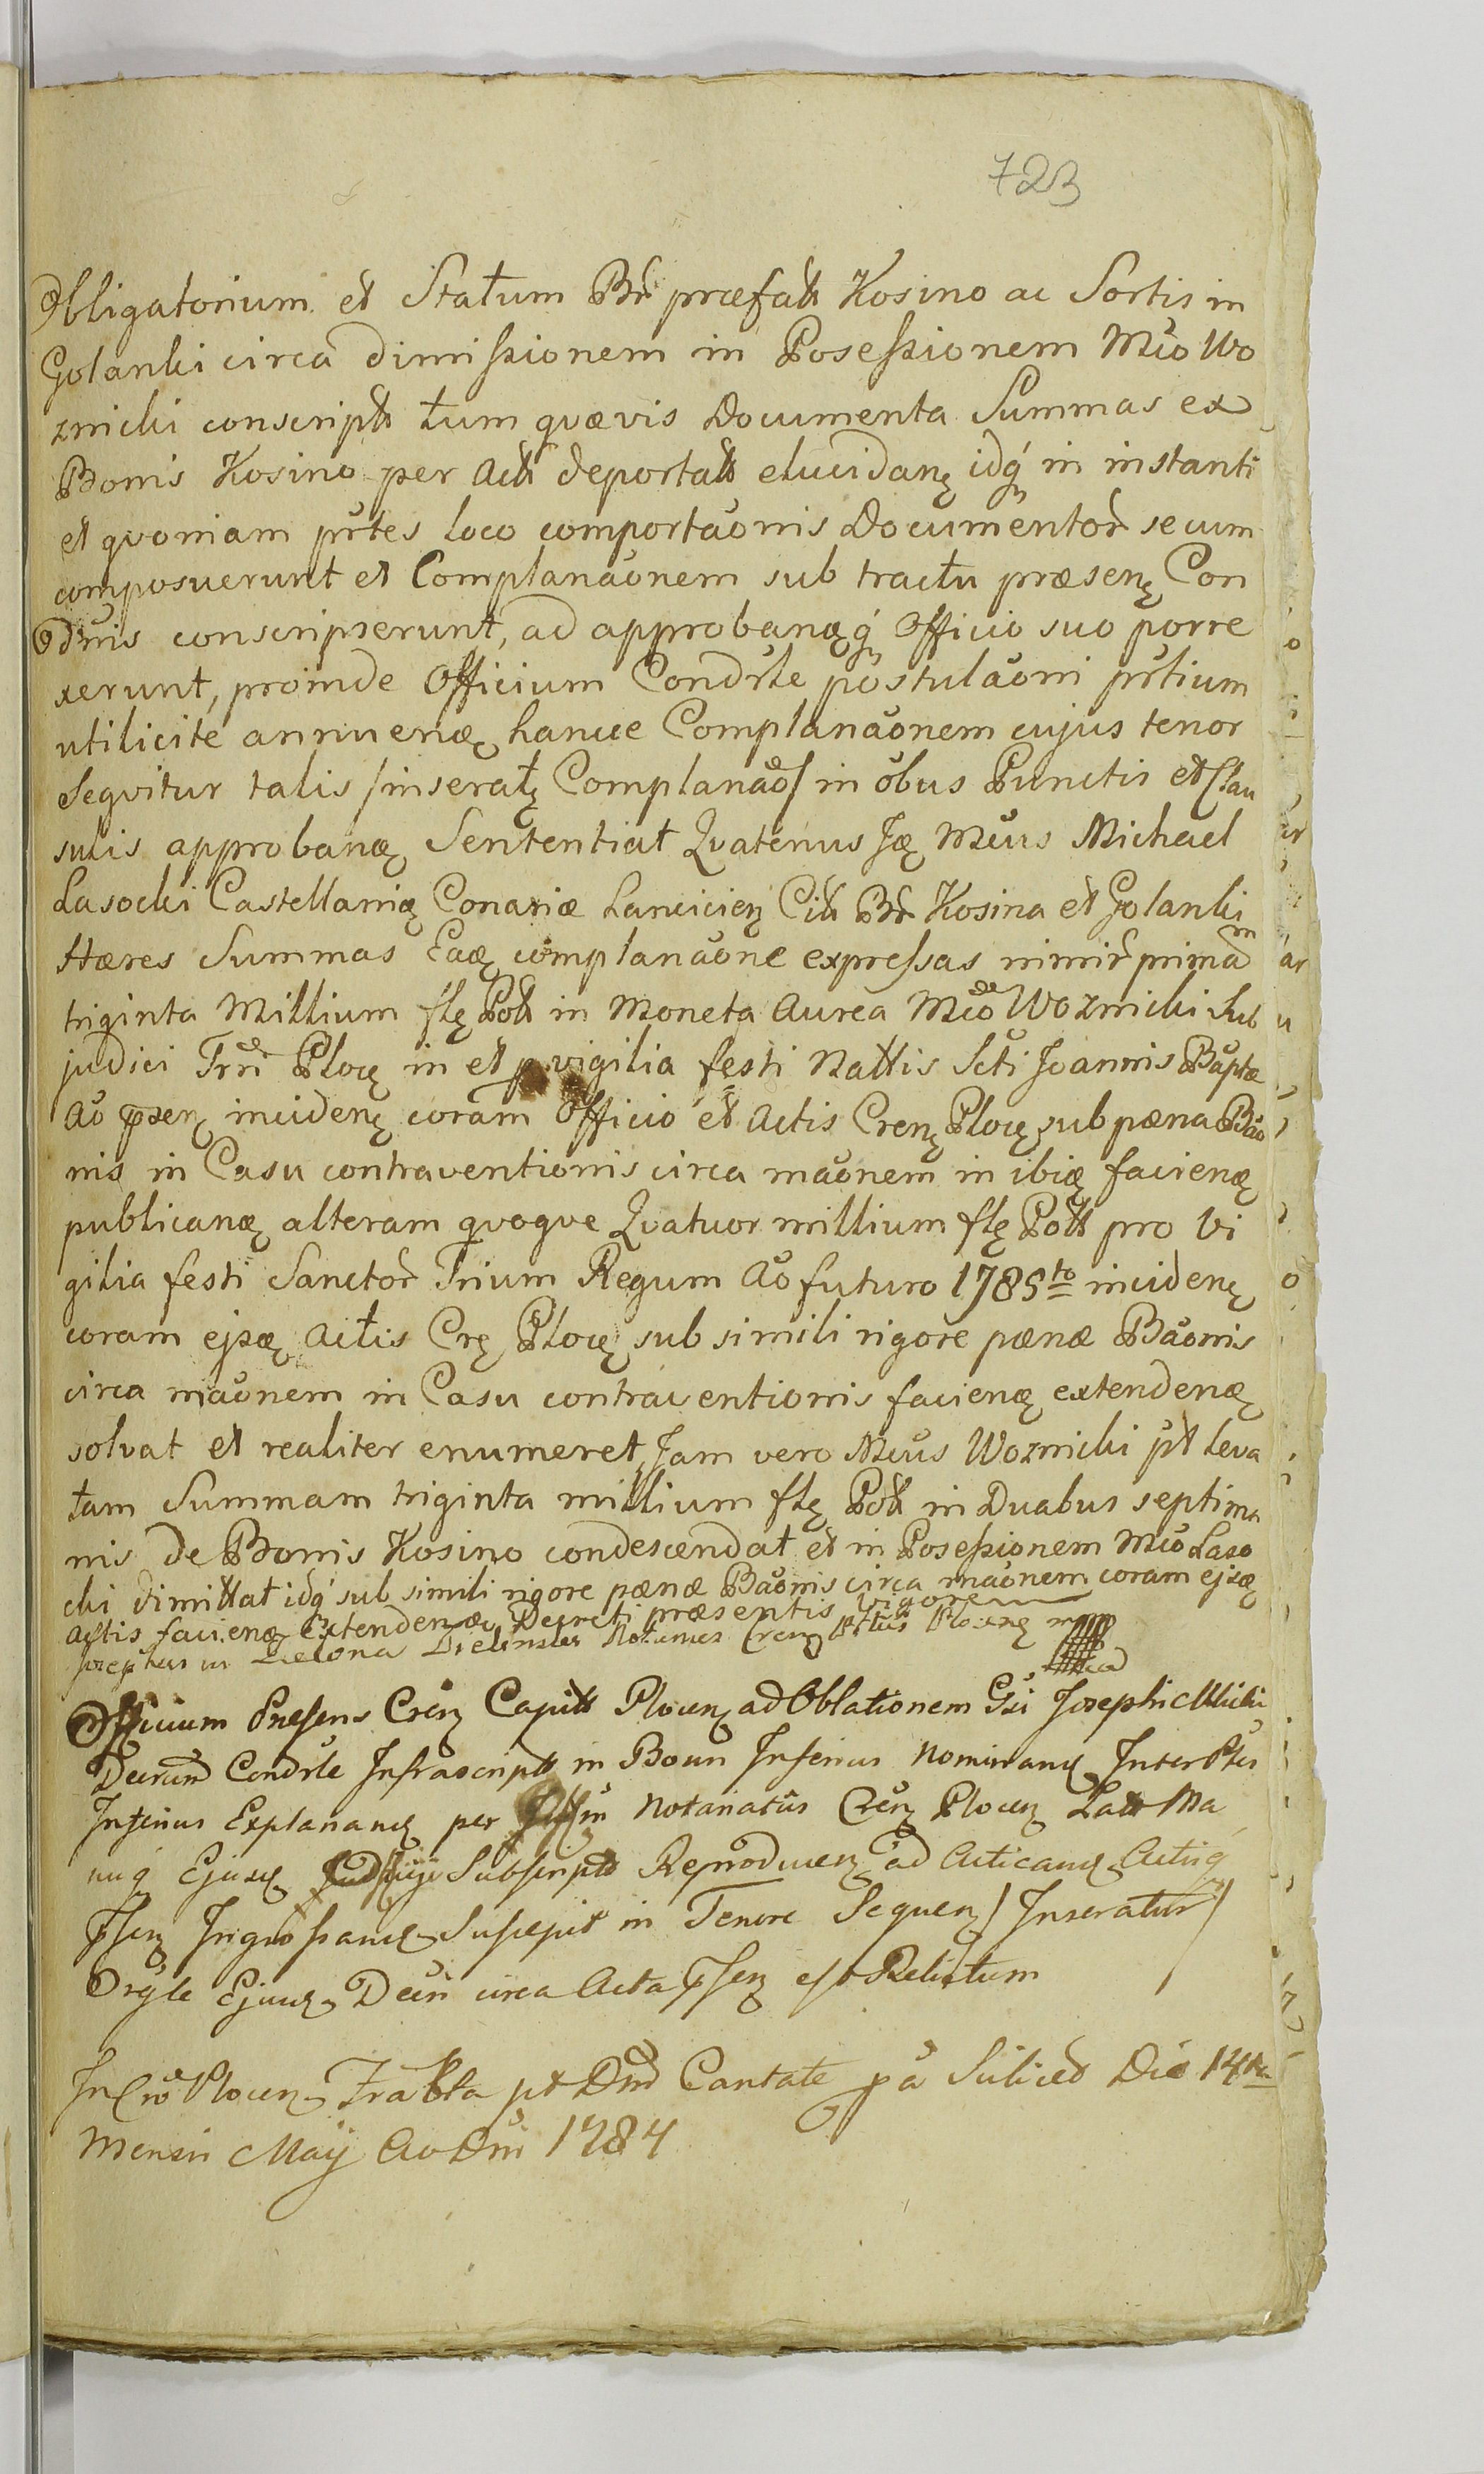 723
Obligatorium et Statum Br præfatt Kosino ac Sortis in
Golanki circa dimissionem in Posessionem Mco Wo
znicki conscriptt tum qvævis Documenta Summas ex
Bonis Kosino per Actt deportatt elucidanę idq́ in instanti
et qvoniam prtes loco comportaonis Documentor secum
composuerunt et Complanaonem sub tractu præsenę Con
dris conscripserunt, ad approbanæq́ Officio suo porre
xerunt, proinde Officium Condrle postulaoni prtium
utilicite annuenæ hancce Complanaonem cujus tenor
Seqvitur talis /inseratę Complanao/ in obus Punctis et Clau
sulis approbanæ Sententiat Qvatenus Jæ Mcus Michael
Lasocki Castellanię Conariæ Lancicien Citt Br Kosina et Golanki
Hæres Summas Eaæ complanaone expressas nimir primam
triginta Millium flę Poll in Moneta Aurea Mco Woznicki Sub
judici Trri Plocę in et p vigilia festi Nattis Scti Joannis Baptæ
Ao psenę incidenę coram Officio et Actis Crenę Plocę sub pæna Bao
nis in Casu contraventionis circa maonem in ibię facienæ
publicanæ alteram qvoqve Qvatuor millium flę Poll pro vi
gilia festi Sanctor Trium Regum Ao futuro 1785to incidenę
coram ejsæ Actis Crę Plocę sub simili rigore pænæ Baonis
circa maonem in Casu contraventionis facienæ extendenæ
solvat et realiter enumeret, Jam vero Mcus Woznicki pt leva
tam Summam triginta millium flę Poll in Duabus septima
nis de Bonis Kosino condescendat et in Posessionem Mco Laso
cki dimittat idq́ sub simili rigore pænæ Baonis circa maonem coram ejsæ
Actis facienæ Extendenæ Decreti præsentis vigore
Josephus in Zielona Zielinski Notarius Crenę Plocenę
Officium Præsens Crenę Capitt Plocenę ad Oblationem Gsi Josephi Milicki
Decrum Condrle Infrascriptt in Bonis Inferius Nominanę Inter Ptes
Inferius Explananę per Notariatus Crenę Plocenę Latt Ma
nuq́ Ejusę Subscriptt Reproducenę ad Acticanę Actisq́
Psenę Ingrossanę Suscepit in Tenore Sequenę /Inseratur/
Orgle Ejusę Decri circa Acta Psenę est Relictum
In Cro Plocenę Fra 6ta pt Dnd Cantate pa Scilicet Die 14ta
Mensis Maij Ao Dni 1784